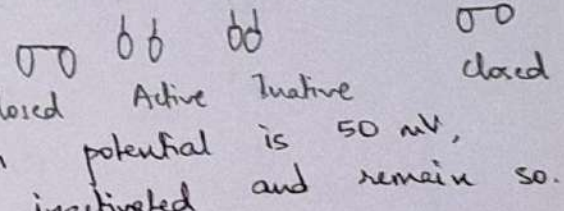 losed Active Inative closed
potential is 50 mV,
inactivated and remain so.